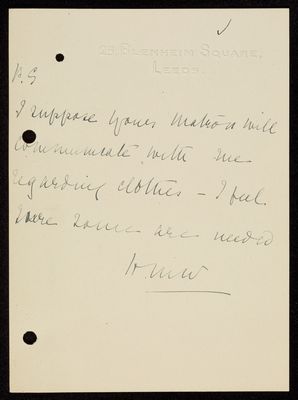 23, BLENHEIM SQUARE,
LEEDS.
P.S
I suppose your Matron will
communicate with me
regarding clothes – I feel
sure some are needed
H.M.W